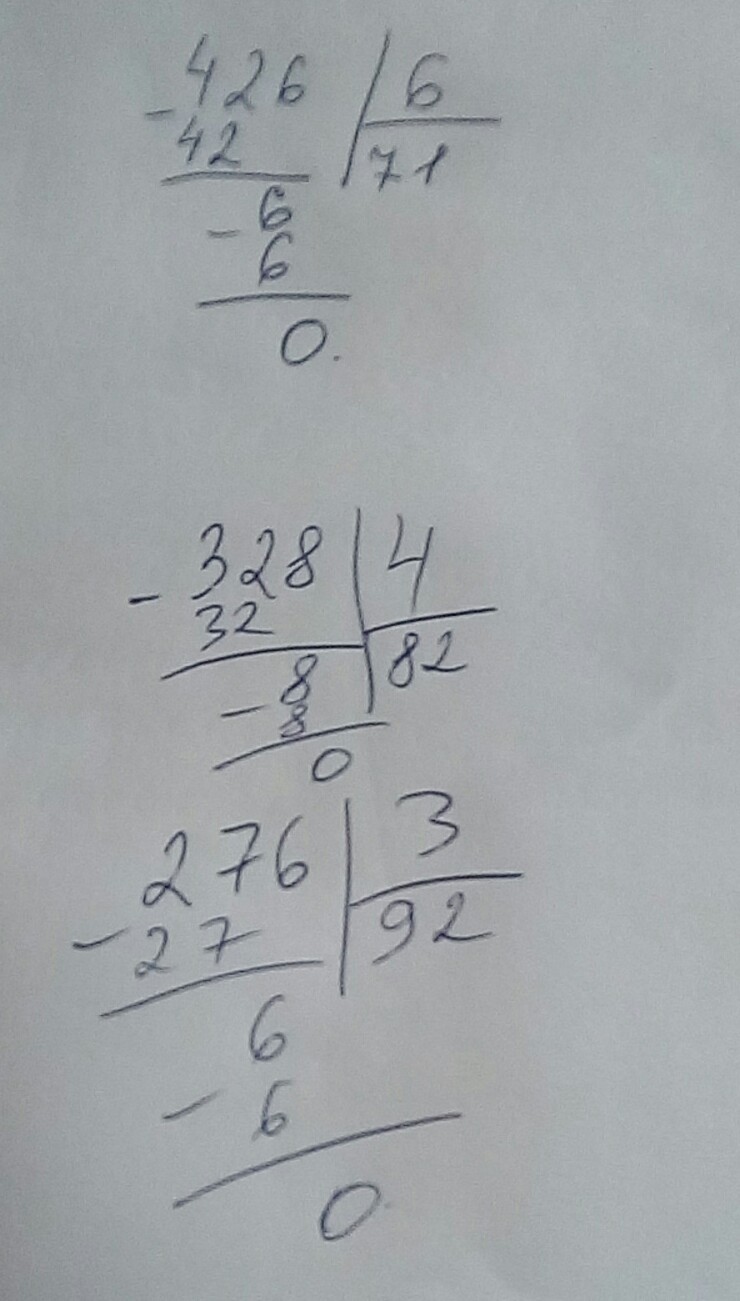 - 426 | 6
42 71
- 6
6
0.
- 328 | 4
32 82
- 8
8
0
276 | 3
- 27 92
6
- 6
0.